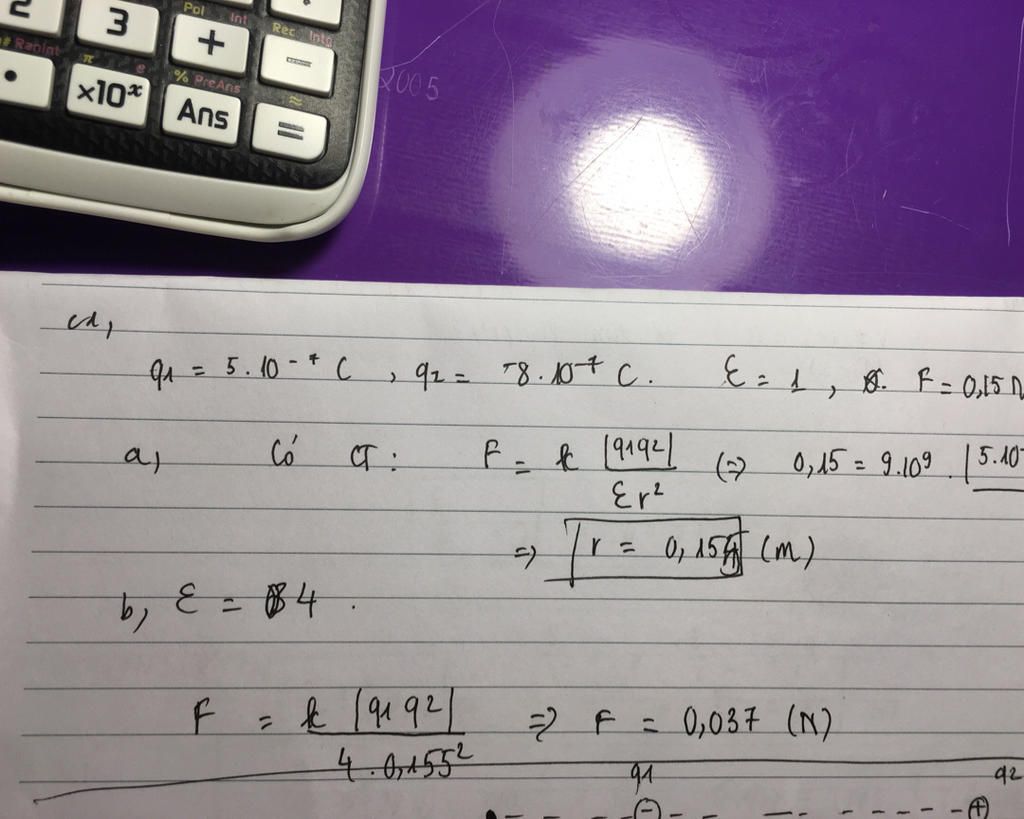 2
3
Pol Int
+
Rec Intg
−
# RanInt
•
π e
×10ˣ
% PreAns
Ans
≈
=
2005
c1,
q1 = 5.10⁻⁷ C , q2 = -8.10⁻⁷ C. ε = 1 , F = 0,15 N
a, Có CT: F = k |q1q2| / εr² (=> 0,15 = 9.10⁹ . |5.10
=> r = 0,154 (m)
b, ε = 4 .
F = k |q1q2| / 4.0,155² => F = 0,037 (N)
q1 q2
- - - ⊖ - - - - - - - - - ⊕